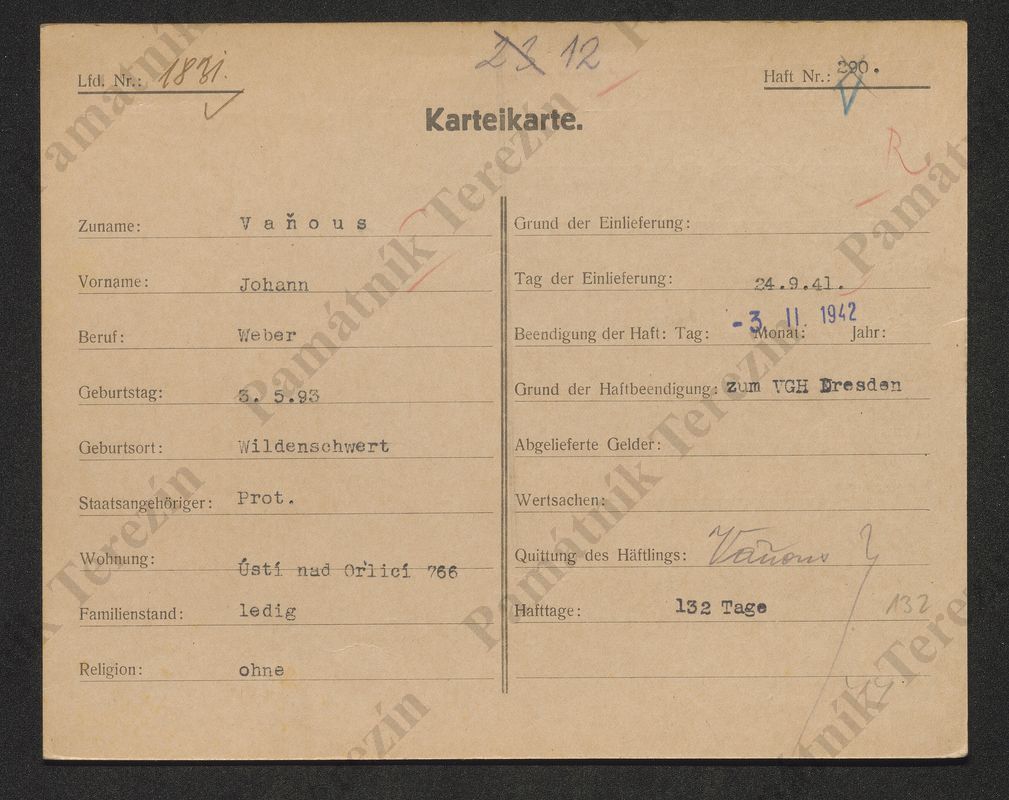 Lfd. Nr.: 1831.
23 12
Haft Nr.: 290.
Karteikarte.
R.
Zuname: Vaňous
Vorname: Johann
Beruf: Weber
Geburtstag: 3. 5.93
Geburtsort: Wildenschwert
Staatsangehöriger: Prot.
Wohnung: Ústí nad Orlicí 766
Familienstand: ledig
Religion: ohne
Grund der Einlieferung:
Tag der Einlieferung: 24.9.41.
Beendigung der Haft: Tag: -3 Monat: II Jahr: 1942
Grund der Haftbeendigung: zum VGH Dresden
Abgelieferte Gelder:
Wertsachen:
Quittung des Häftlings: Vaňous
Hafttage: 132 Tage 132
Památník Terezín